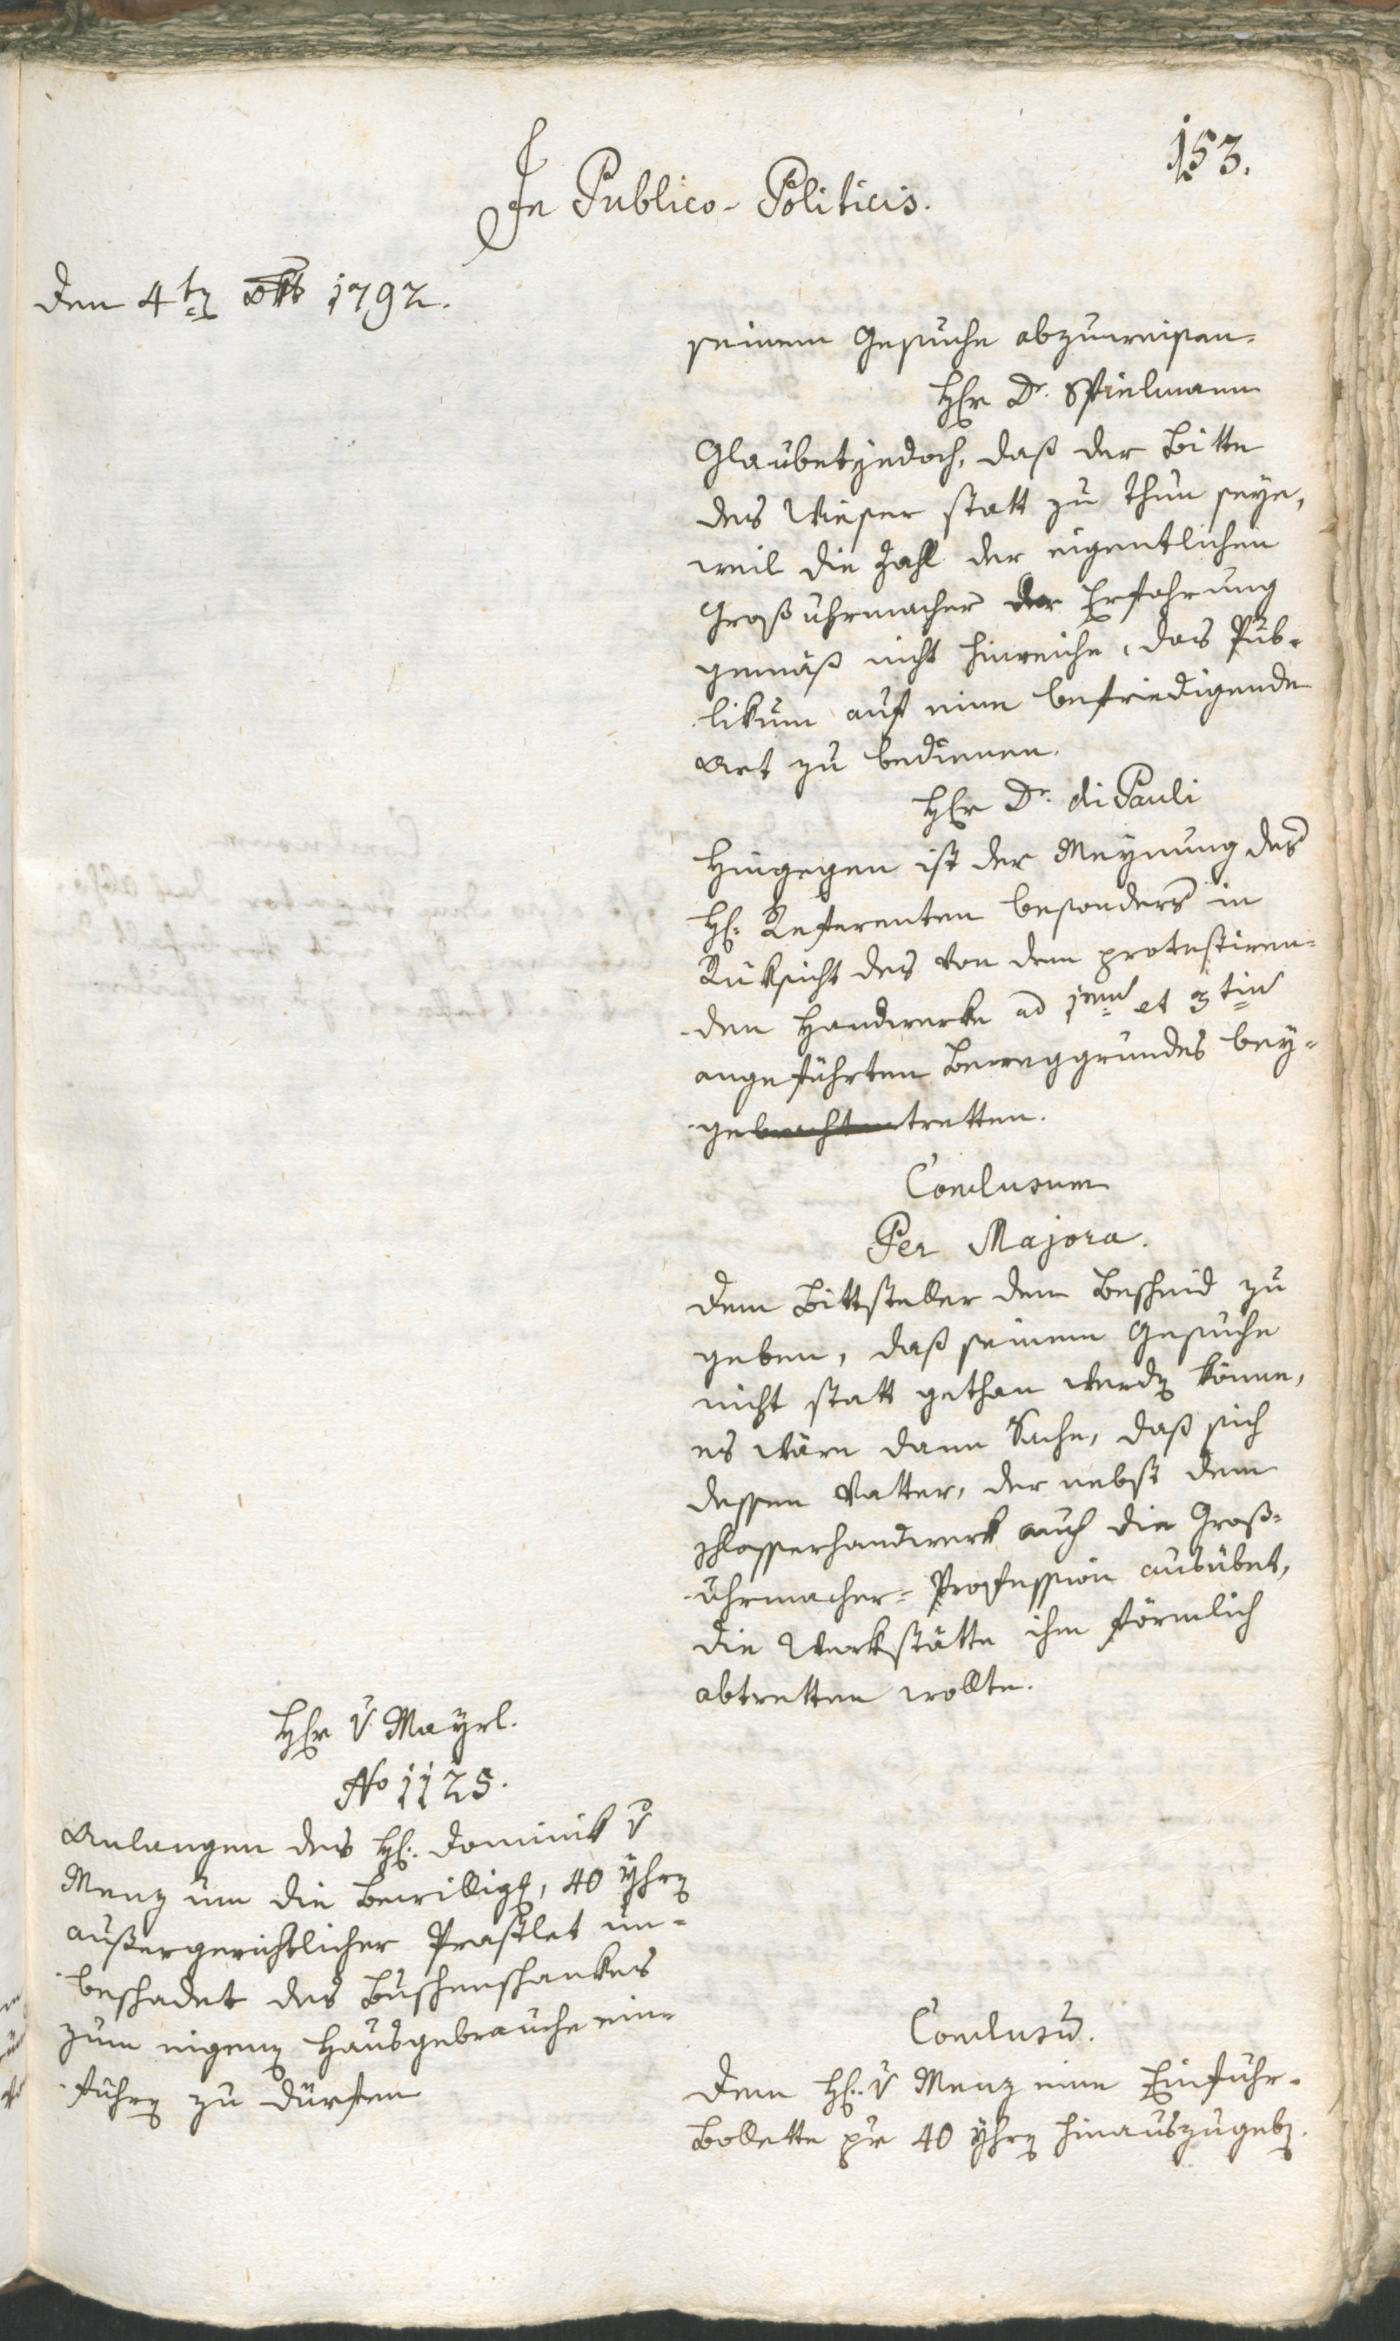 153.
In Publico-Politicis.
den 4ten 8tb 1792.
seinem Gesuche abzuweisen.
Hr Dr. Stielmann
Glaubet jedoch, daß der Bitte
des Wieser statt zu thun seye,
weil die Zahl der eigentlichen
Großuhrmacher der Erfahrung
gemäß nicht hinreiche, das Pub-
likum auf eine befriedigende
Art zu bedienen.
Hr Dr. di Pauli
Hingegen ist der Meynung des
H: Referenten besonders in
Rüksicht des von dem protestiren-
den Handwerke ad 1mum et 3tium
angeführten Beweggrundes bey-
gebrachten tretten.
Conclusum
Per Majora.
dem Bittsteller den Bescheid zu
geben, daß seinem Gesuche
nicht statt gethan werden könne,
es wäre dann Sache, daß sich
dessen Vatter, der nebst dem
Schlosserhandwerk auch die Groß-
uhrmacher-Profession ausübet,
die Werkstätte ihm förmlich
abtretten wollte.
Hr v Mayrl.
No 1125.
Anlangen des H: Dominik v
Menz um die Bewilligg, 40 Yhrn
außergerichtlicher Prastlet un-
beschadet des Buschenschankes
zum eigenen Hausgebrauche ein-
führen zu dürfen
Conclusum.
dem H: v Menz eine Einfuhr-
Bollette pr 40 Yhrn hinauszugeben.